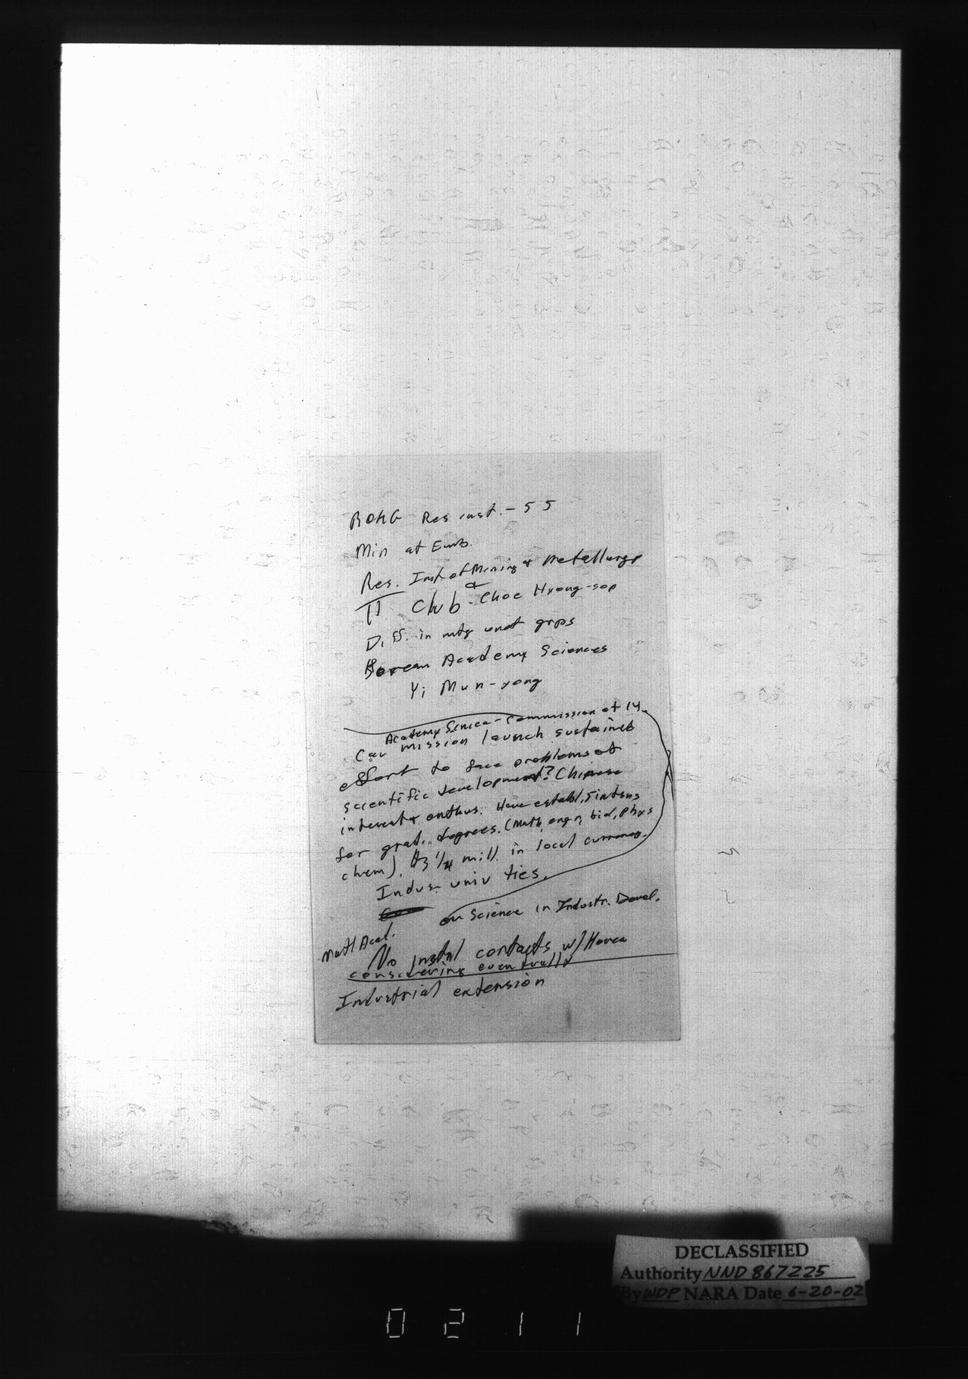 ROKG Res inst. - 55
Min at Emb.
Res. Inst of Mining & Metallurgy
TI Club - Choe Hyong-sop
Diff. in mtg univ grps
Korean Academy Sciences
Yi Mun-yong
Academy Sinica - Commission of 14.
Can mission launch sustained
effort to face problems of
scientific development? Chinese
interest & enthus. Have establ. 5 insts
for grad. degrees. (Math, engr, biol, phys
chem). $3 1/4 mill. in local currency.
Indus-univ ties.
on Science in Industr. Devel.
Natl Acad.
No instnl contacts w/ Korea
considering eventually
Industrial extension
DECLASSIFIED
Authority NND 867225
By WDP NARA Date 6-20-02
0211